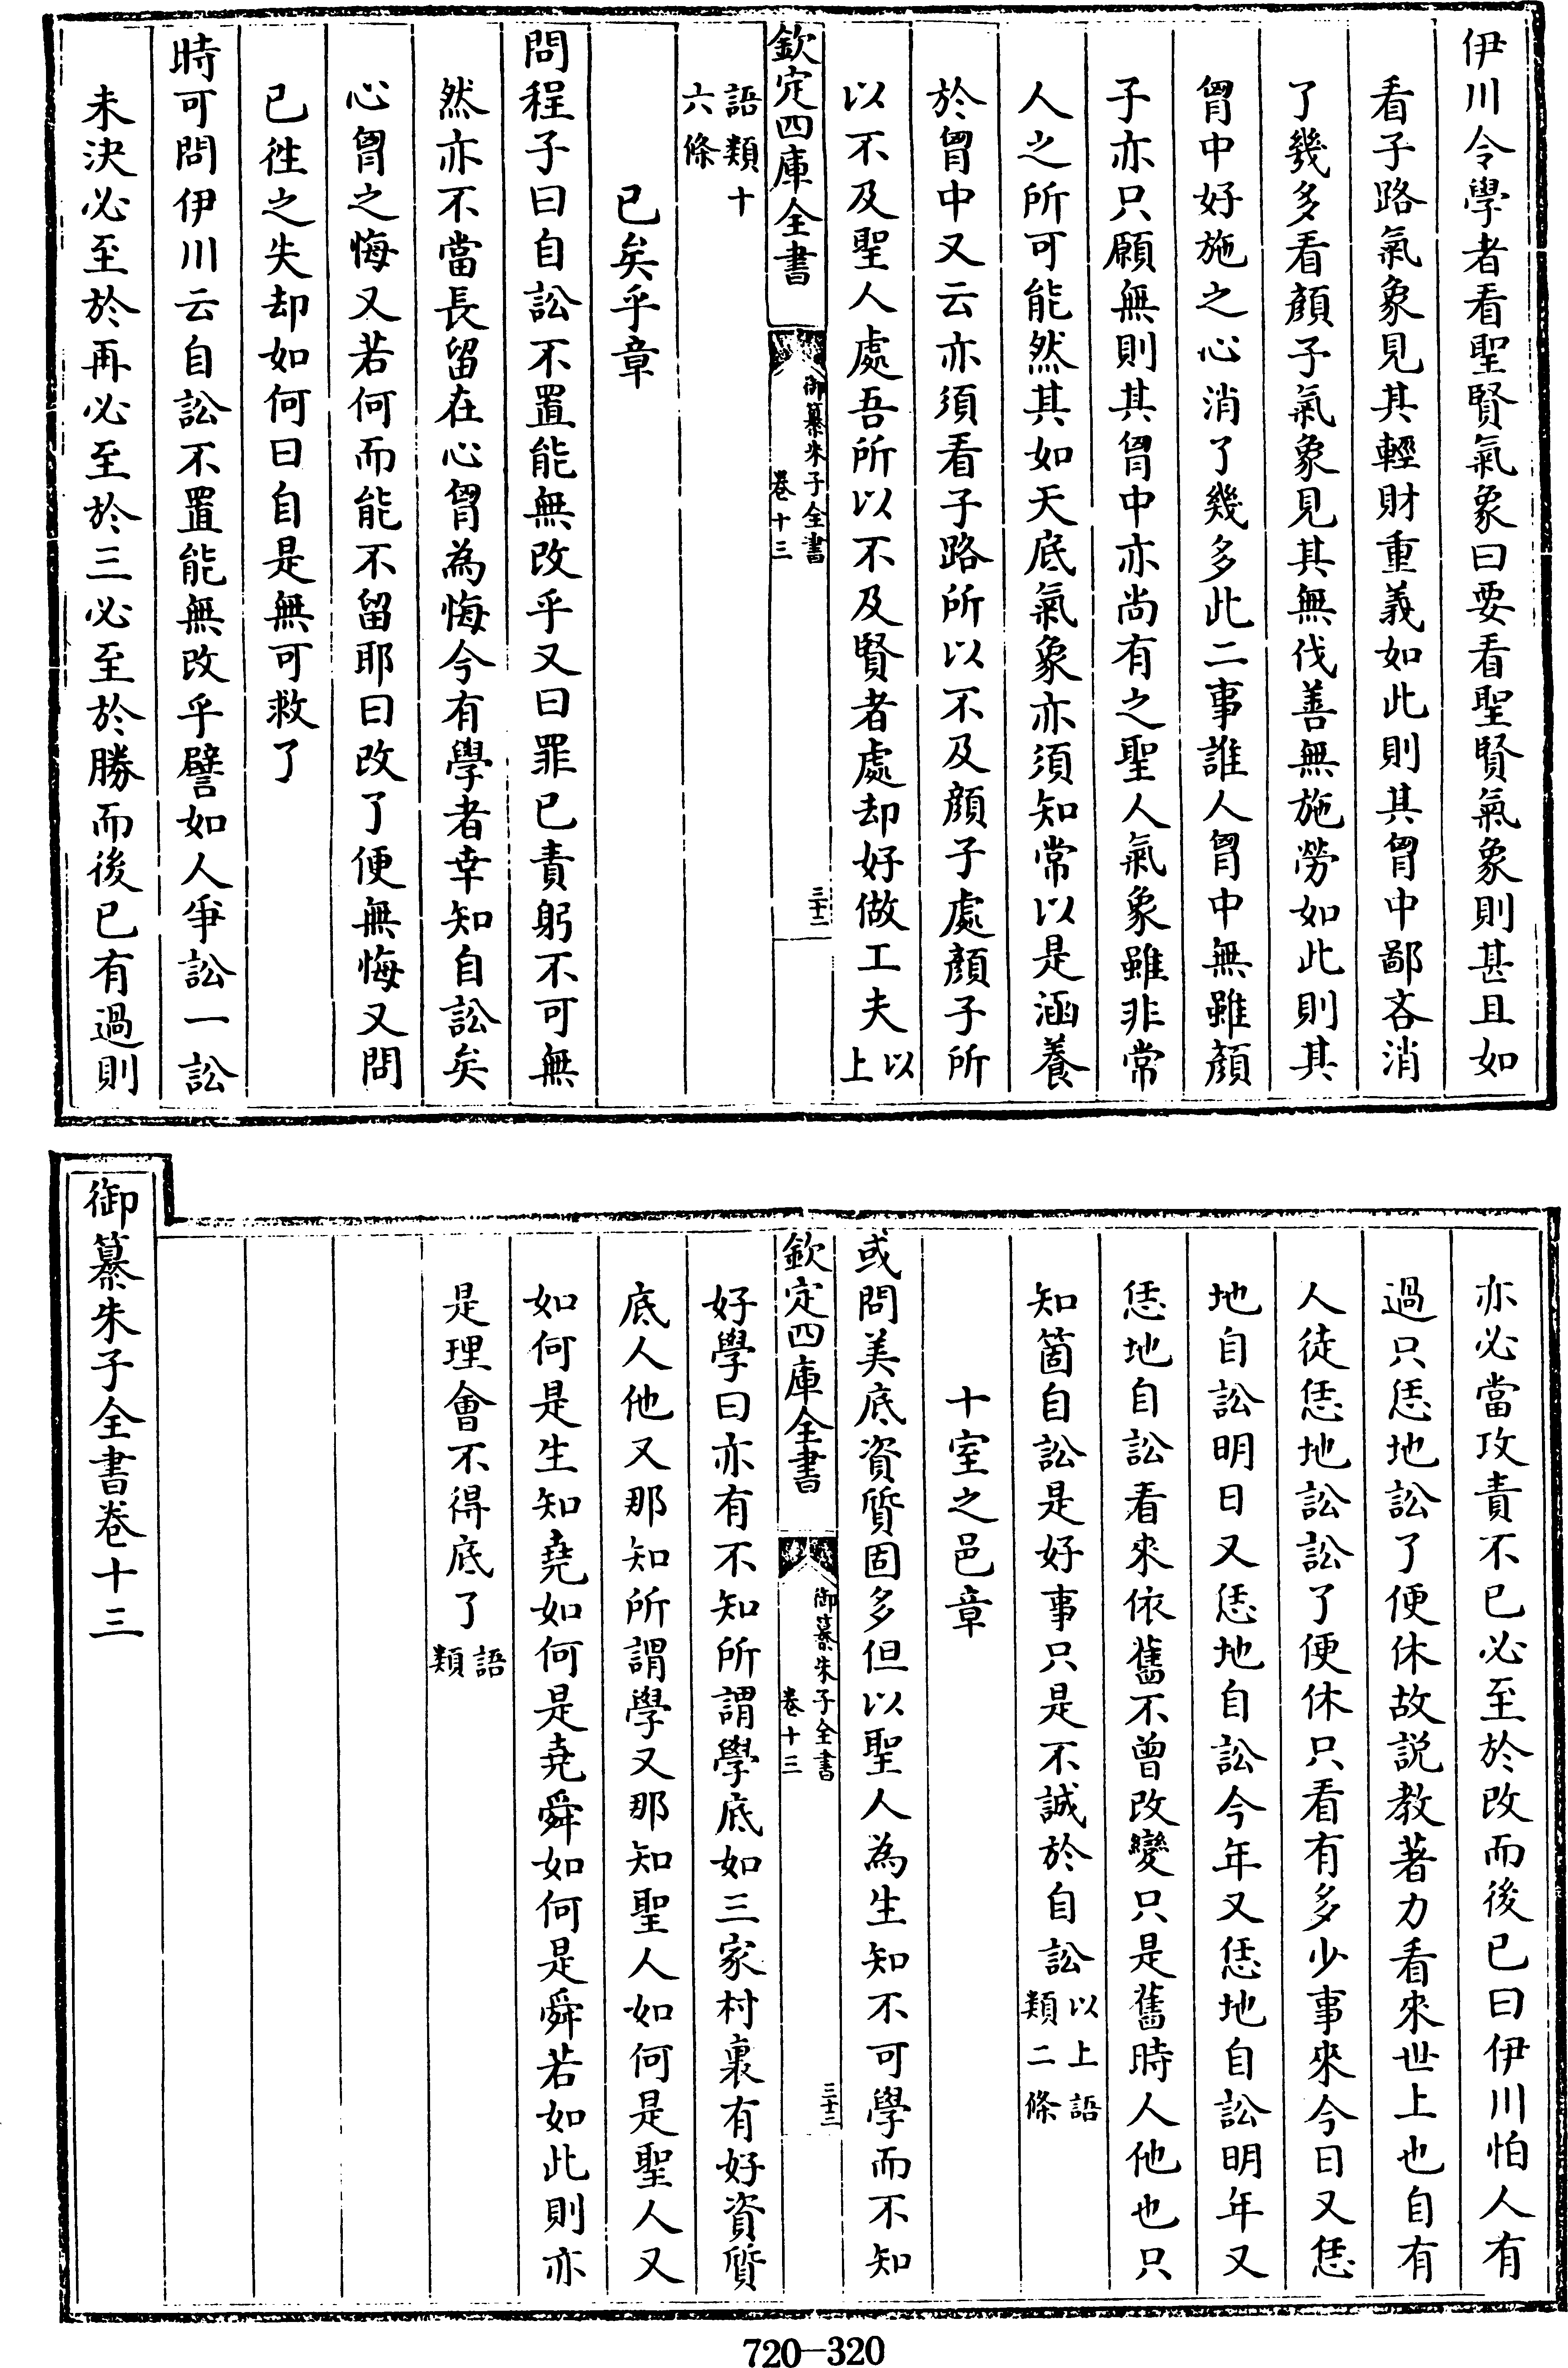 伊川令學者看聖賢氣象曰要看聖賢氣象則甚且如
看子路氣象見其輕財重義如此則其胷中鄙吝消
了幾多看顔子氣象見其無伐善無施勞如此則其
胷中好施之心消了幾多此二事誰人胷中無雖顔
子亦只願無則其胷中亦尚有之聖人氣象雖非常
人之所可能然其如天底氣象亦須知常以是涵養
於胷中又云亦須看子路所以不及顔子處顔子所
以不及聖人處吾所以不及賢者處却好做工夫以上
欽定四庫全書
御纂朱子全書
卷十三
三十二
語類十六條
已矣乎章
問程子曰自訟不置能無改乎又曰罪已責躬不可無
然亦不當長留在心胷為悔今有學者幸知自訟矣
心胷之悔又若何而能不留耶曰改了便無悔又問
已徃之失却如何曰自是無可救了
時可問伊川云自訟不置能無改乎譬如人爭訟一訟
未決必至於再必至於三必至於勝而後已有過則
亦必當攻責不已必至於改而後已曰伊川怕人有
過只恁地訟了便休故説教著力看來世上也自有
人徒恁地訟訟了便休只看有多少事來今日又恁
地自訟明日又恁地自訟今年又恁地自訟明年又
恁地自訟看來依舊不曾改變只是舊時人他也只
知箇自訟是好事只是不誠於自訟以上語類二條
十室之邑章
或問美底資質固多但以聖人為生知不可學而不知
欽定四庫全書
御纂朱子全書
卷十三
三十三
好學曰亦有不知所謂學底如三家村裏有好資質
底人他又那知所謂學又那知聖人如何是聖人又
如何是生知堯如何是堯舜如何是舜若如此則亦
是理會不得底了語類
御纂朱子全書卷十三
720—320